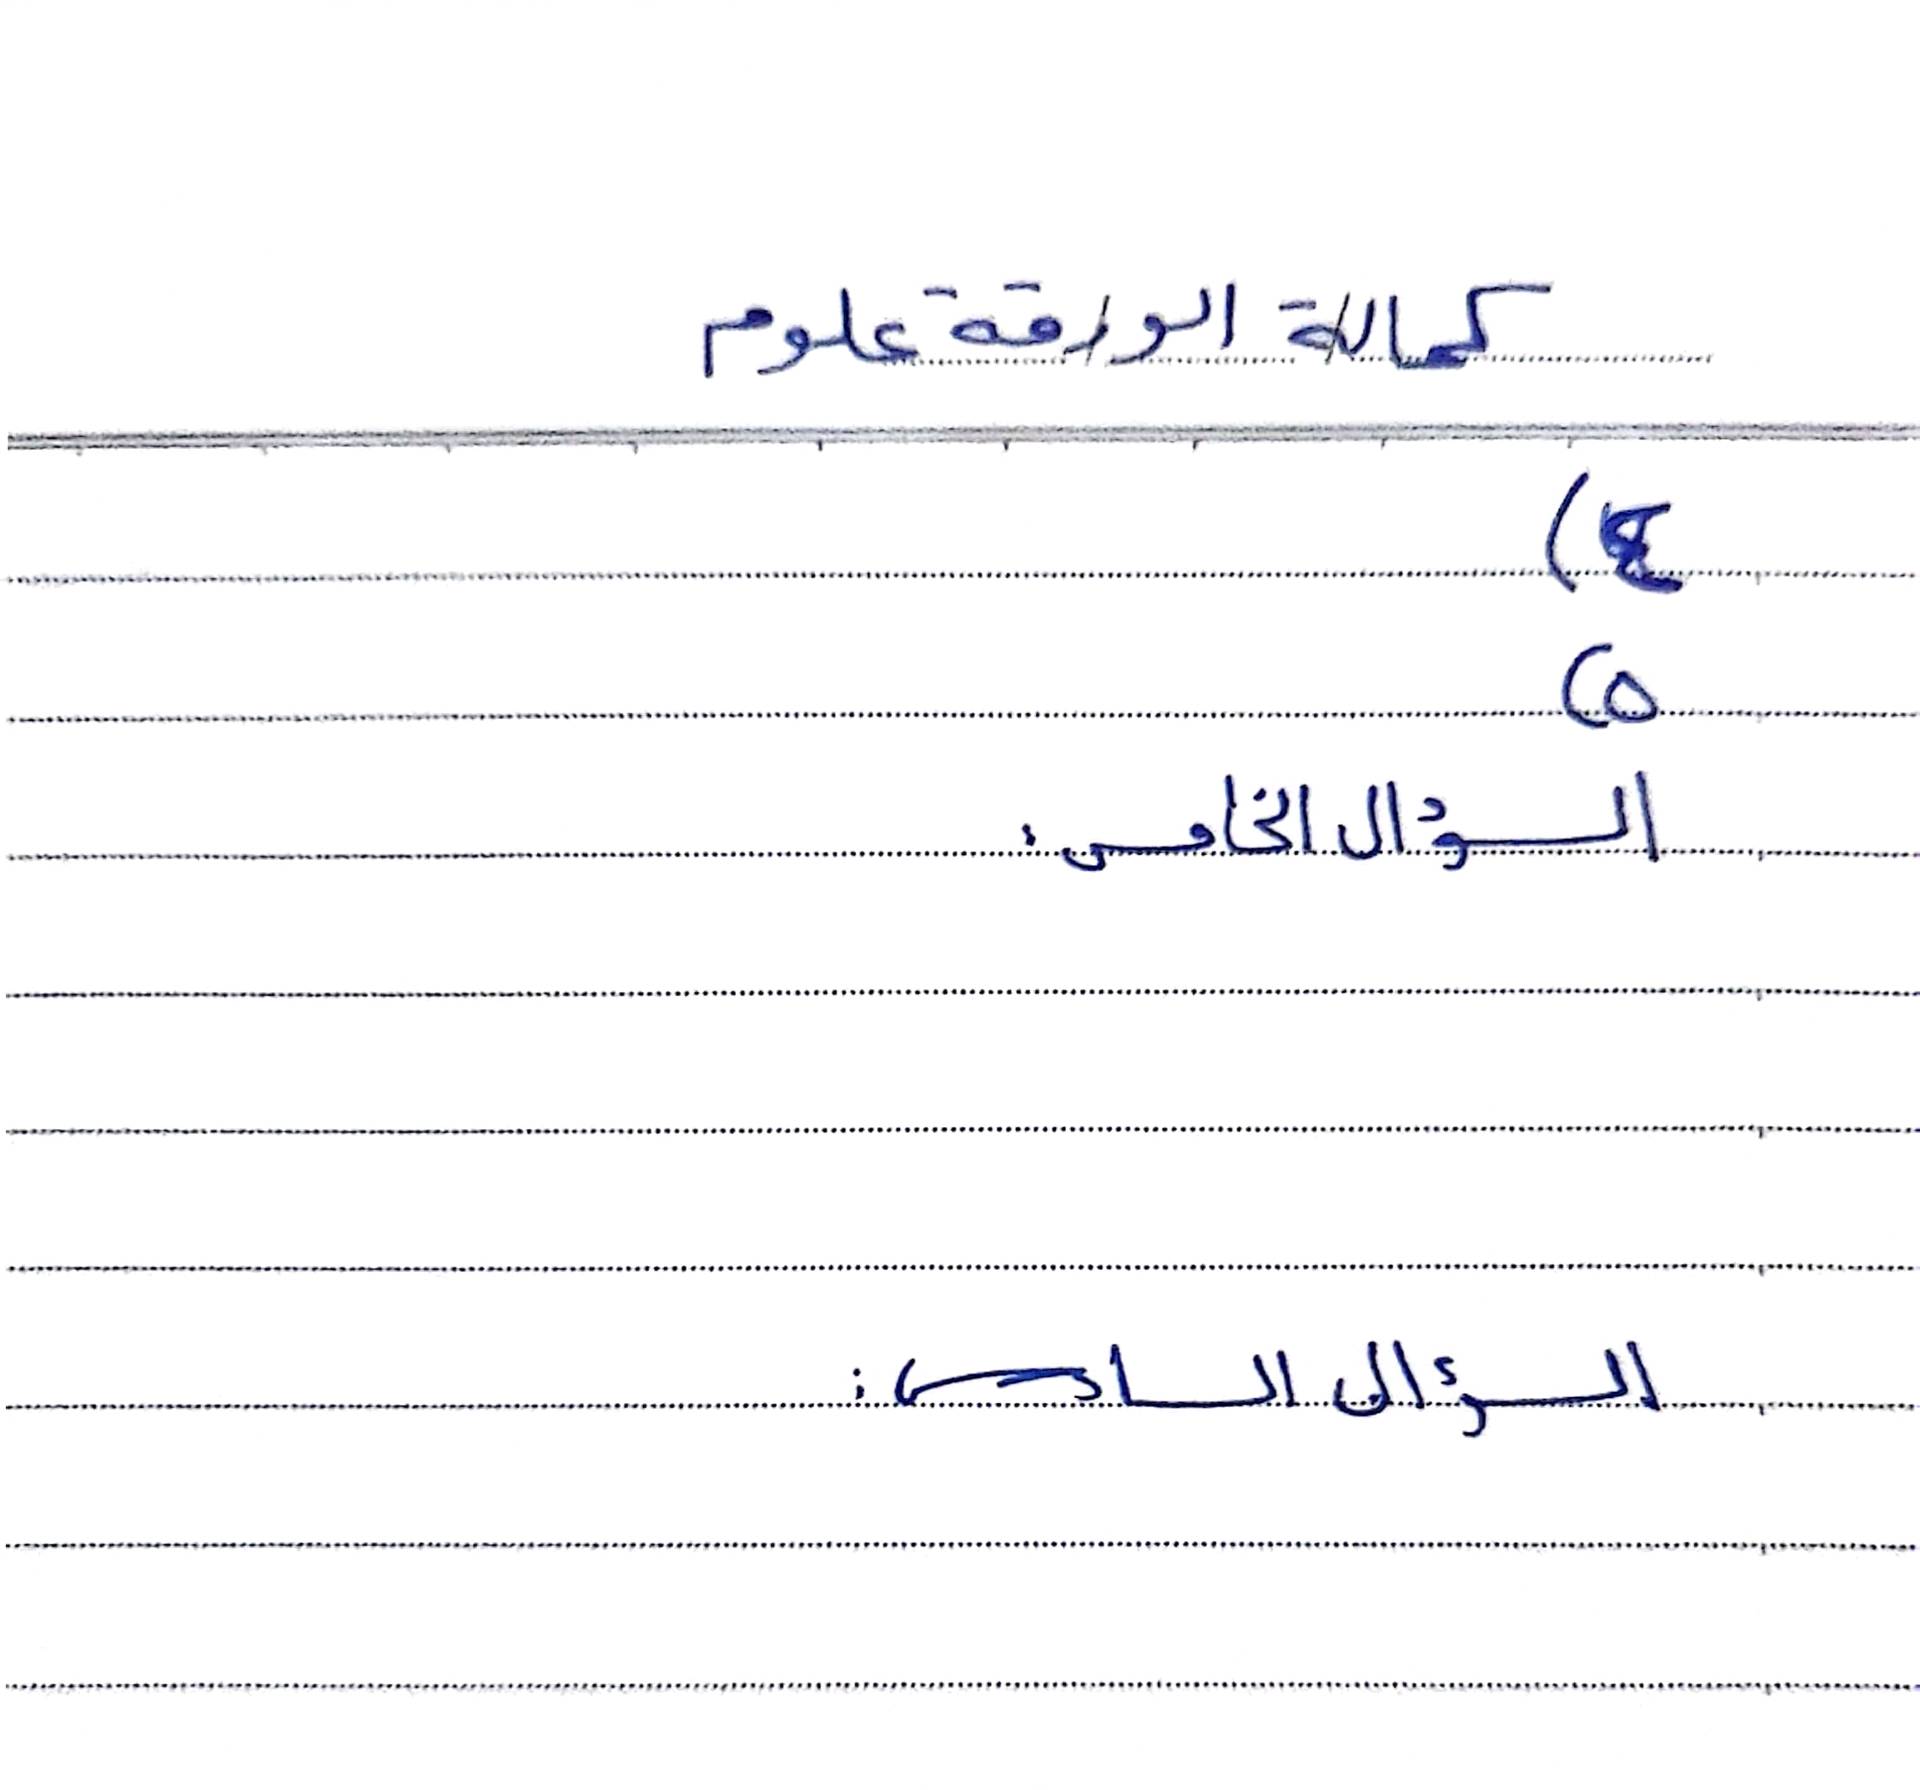 كمالة الورقة علوم
٤)
٥)
السؤال الخامس:
السؤال السادس: